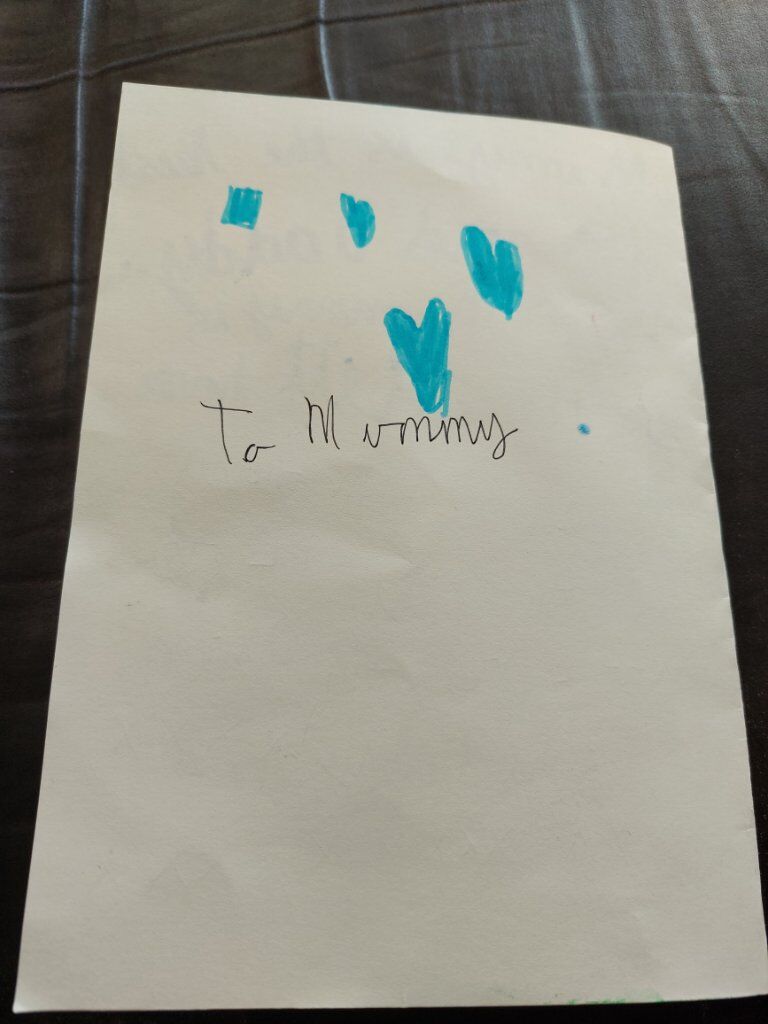 To Mummy